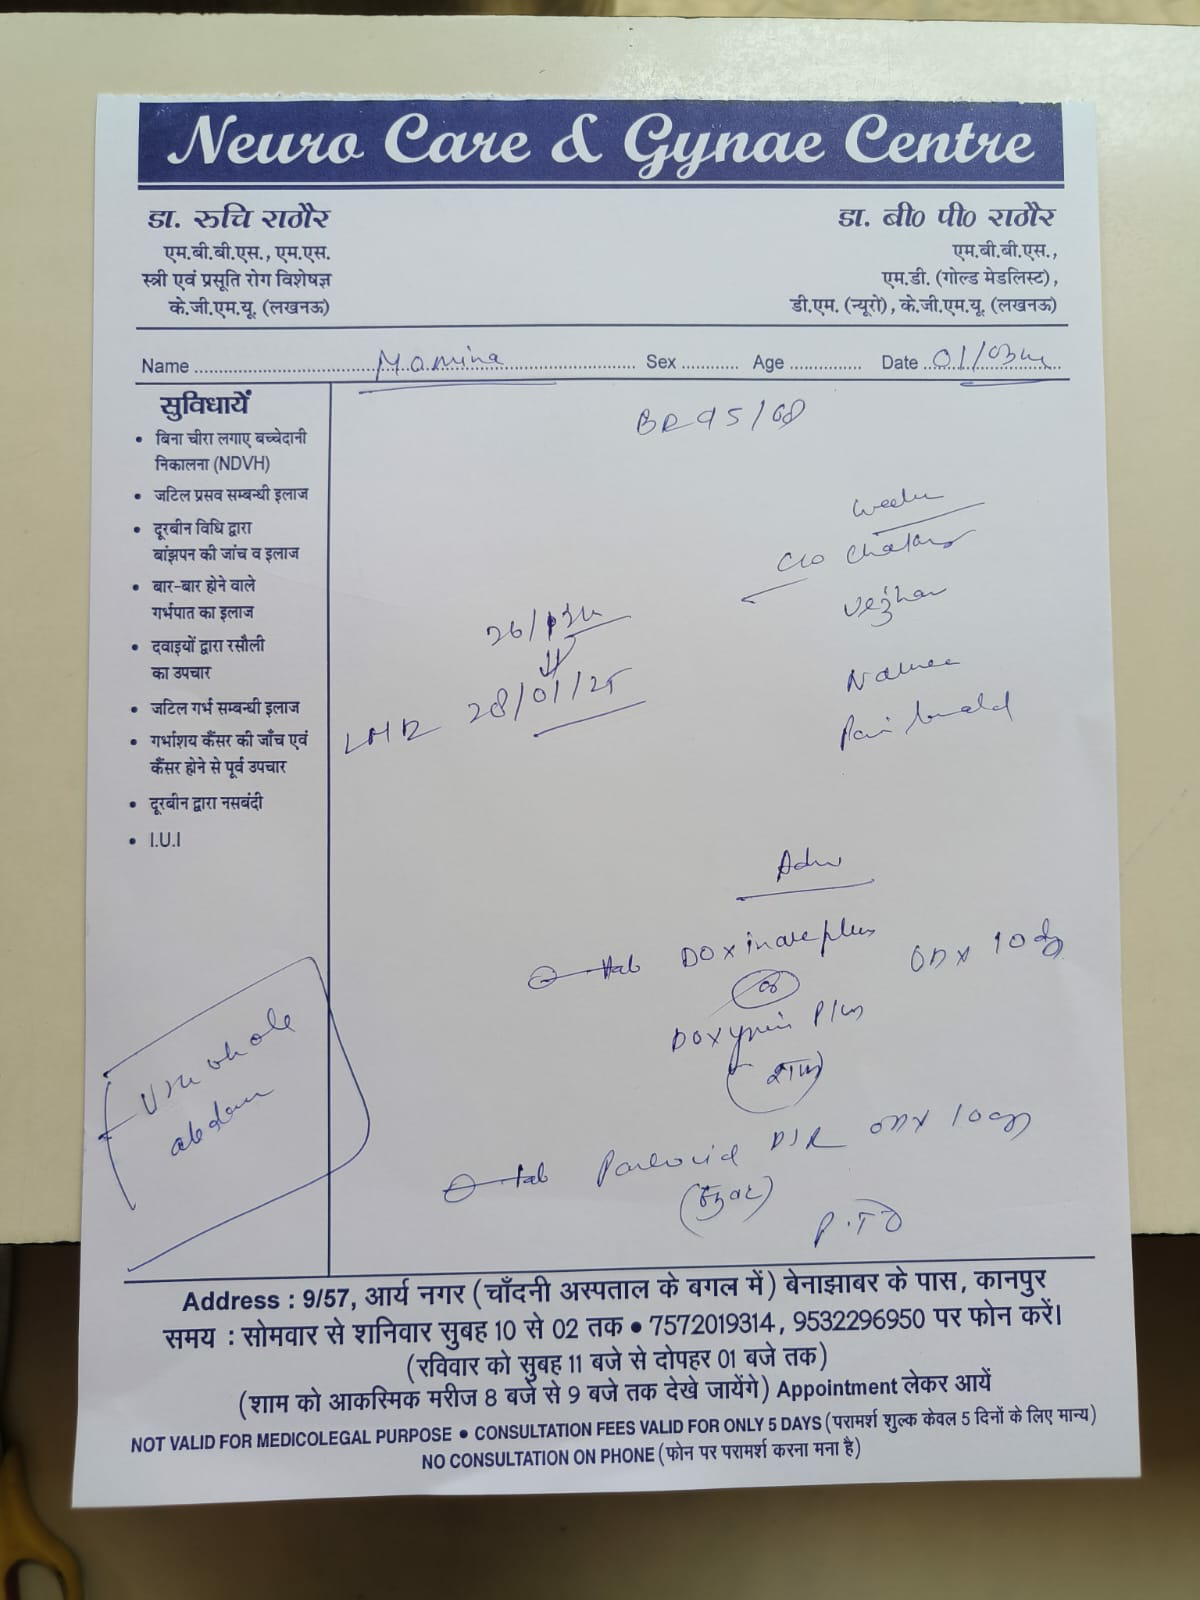 Neuro Care & Gynae Centre
डा. रुचि राठौर
एम.बी.बी.एस., एम.एस.
स्त्री एवं प्रसूति रोग विशेषज्ञ
के.जी.एम.यू. (लखनऊ)
डा. बी० पी० राठौर
एम.बी.बी.एस.,
एम.डी. (गोल्ड मेडलिस्ट),
डी.एम. (न्यूरो), के.जी.एम.यू. (लखनऊ)
Name Momina Sex Age Date 01/03
सुविधायें
• बिना चीरा लगाए बच्चेदानी
निकालना (NDVH)
• जटिल प्रसव सम्बन्धी इलाज
• दूरबीन विधि द्वारा
बांझपन की जांच व इलाज
• बार-बार होने वाले
गर्भपात का इलाज
• दवाइयों द्वारा रसौली
का उपचार
• जटिल गर्भ सम्बन्धी इलाज
• गर्भाशय कैंसर की जाँच एवं
कैंसर होने से पूर्व उपचार
• दूरबीन द्वारा नसबंदी
• I.U.I
95/68
c/o
28/01/25
Adv
tab Doxinate plus OD x 10
Plus
tab DSR OD x 10
P.T.O
whole
Address : 9/57, आर्य नगर (चाँदनी अस्पताल के बगल में) बेनाझाबर के पास, कानपुर
समय : सोमवार से शनिवार सुबह 10 से 02 तक • 7572019314, 9532296950 पर फोन करें।
(रविवार को सुबह 11 बजे से दोपहर 01 बजे तक)
(शाम को आकस्मिक मरीज 8 बजे से 9 बजे तक देखे जायेंगे) Appointment लेकर आयें
NOT VALID FOR MEDICOLEGAL PURPOSE • CONSULTATION FEES VALID FOR ONLY 5 DAYS (परामर्श शुल्क केवल 5 दिनों के लिए मान्य)
NO CONSULTATION ON PHONE (फोन पर परामर्श करना मना है)